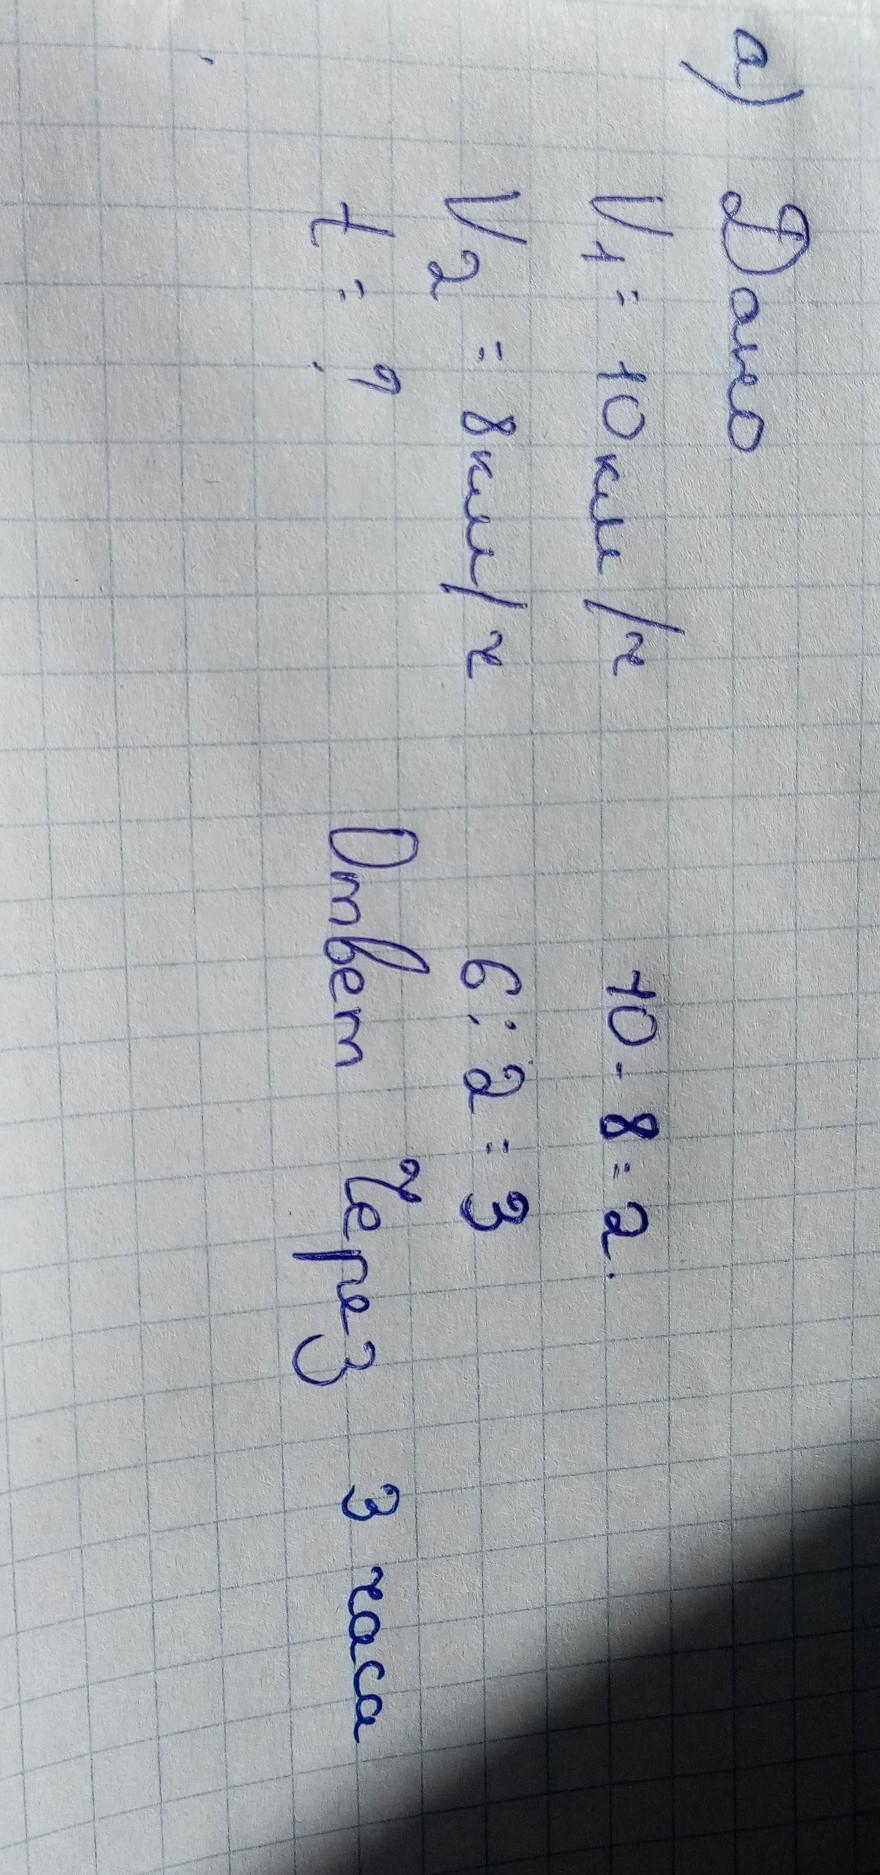 а) Дано
V1 = 10км/ч
V2 = 8км/ч
t = ?
10 - 8 = 2.
6 : 2 = 3
Ответ через 3 часа